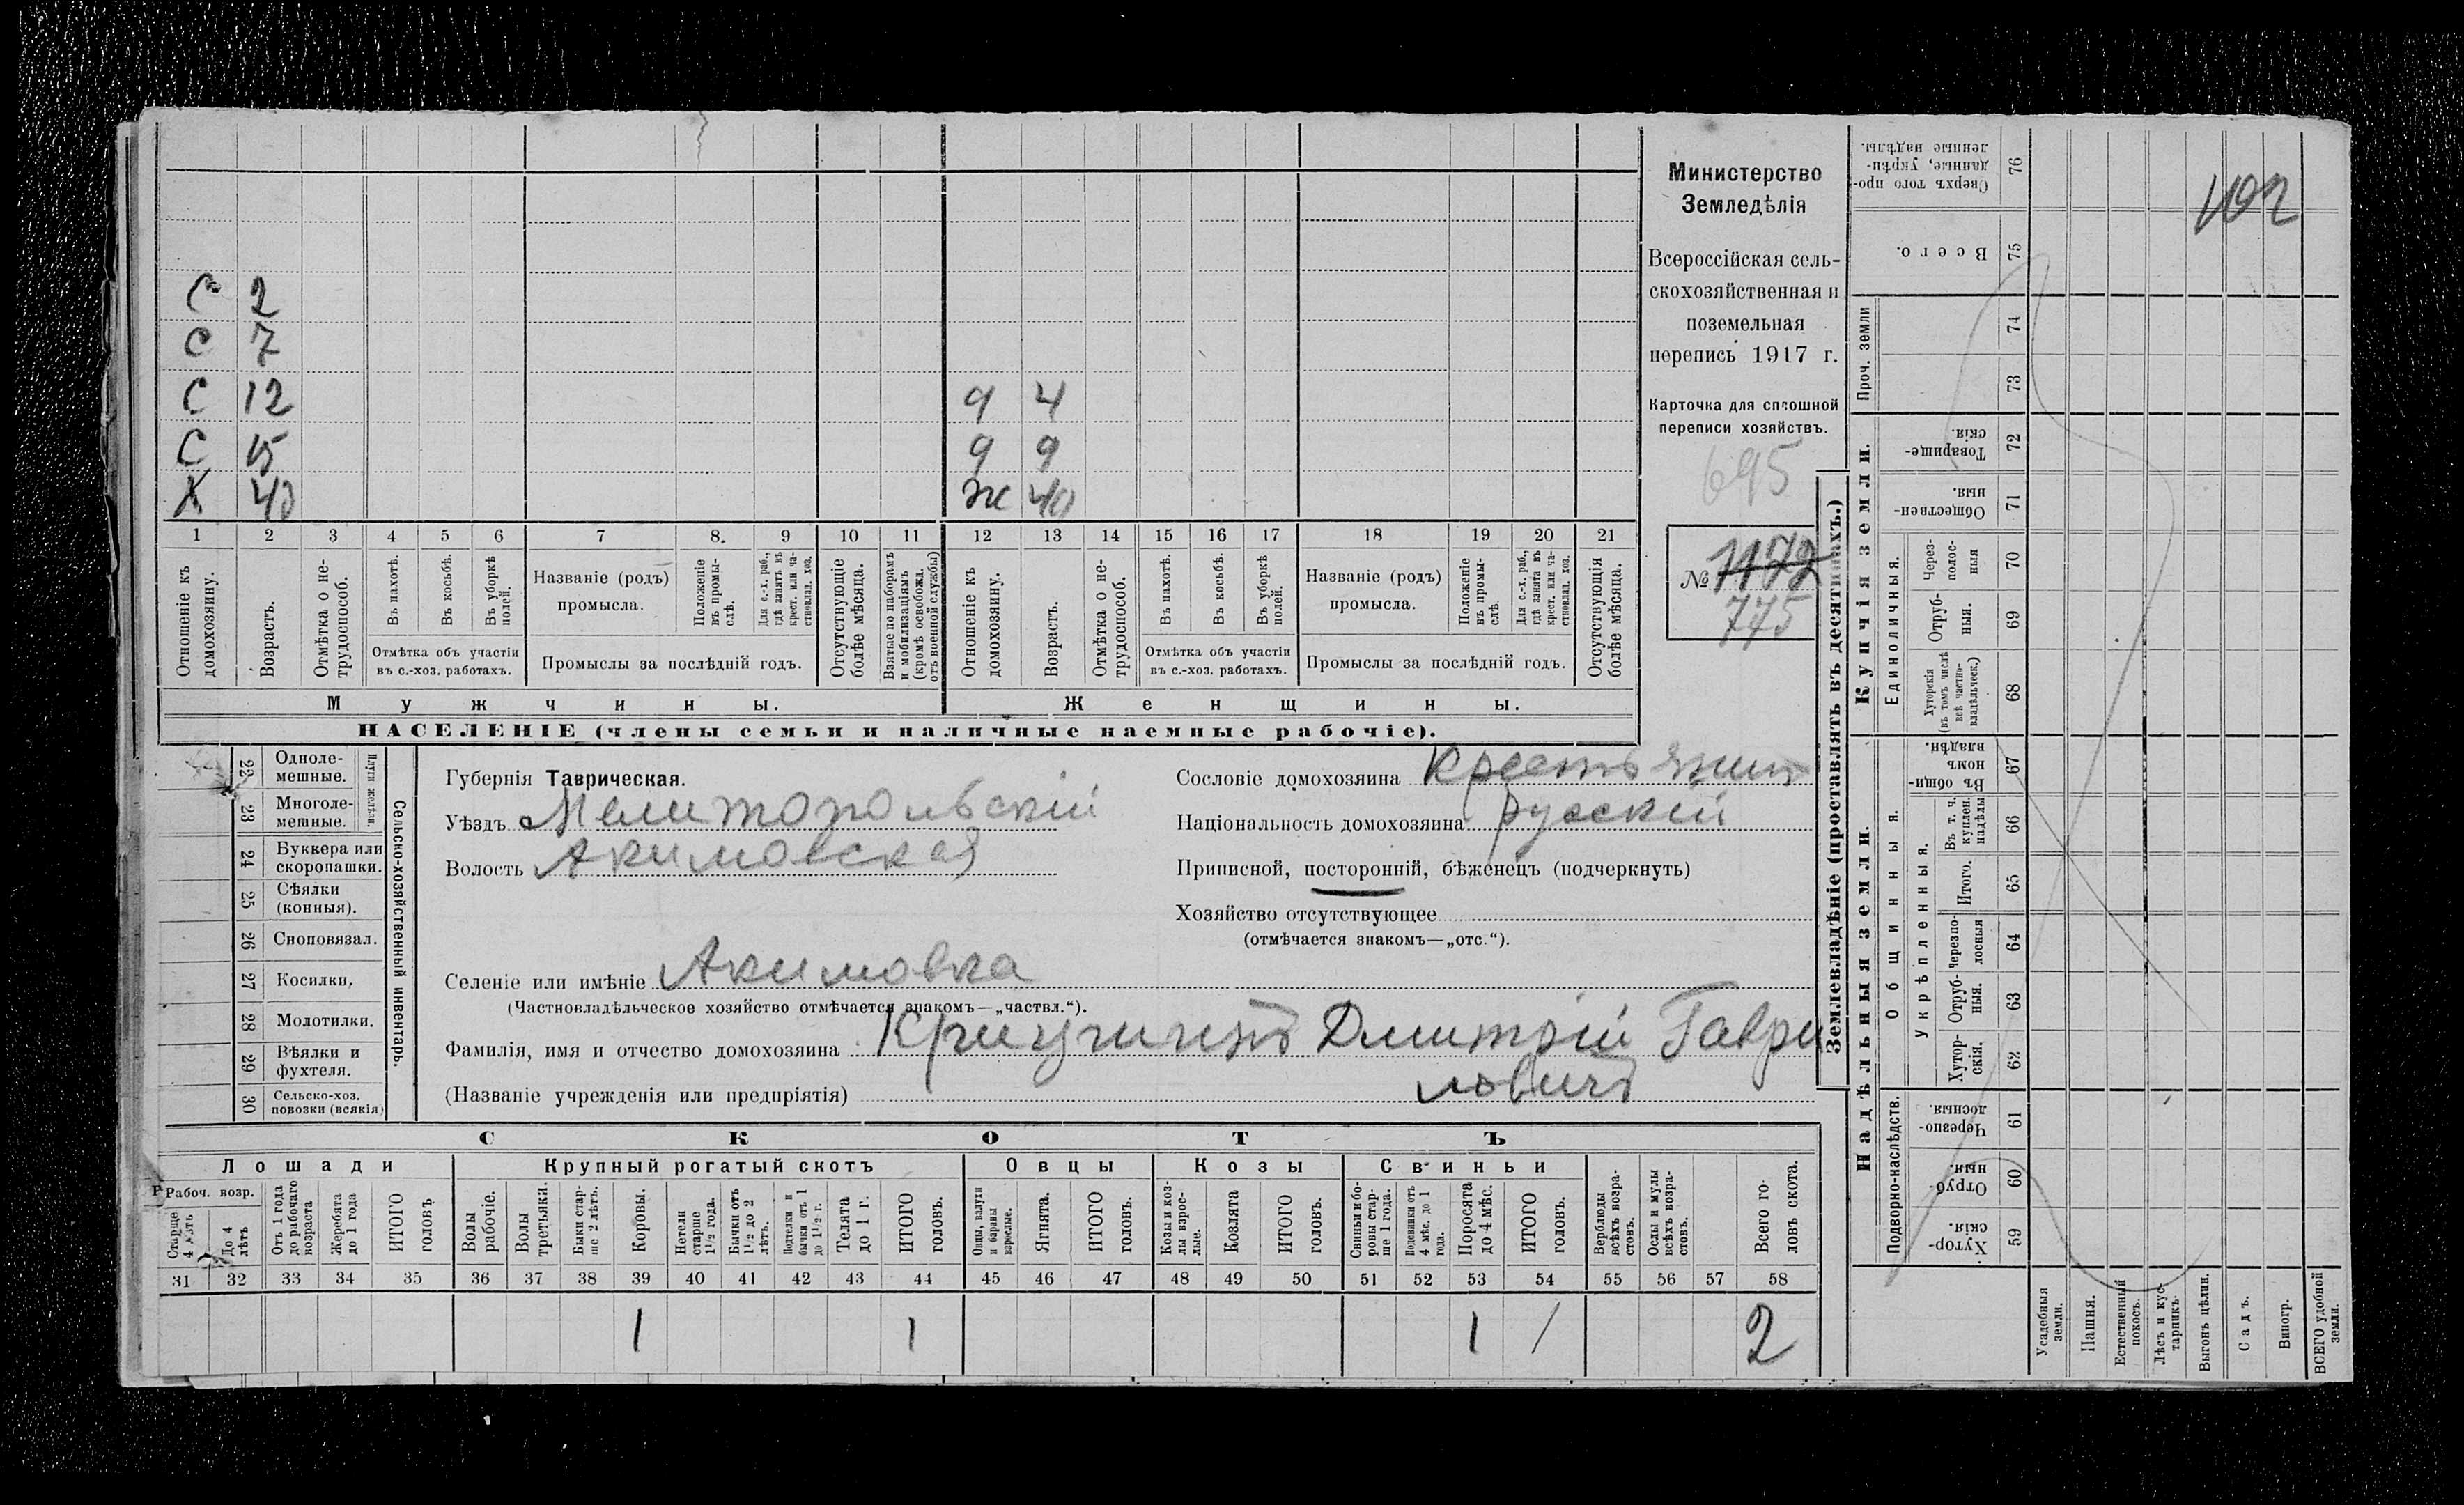 С 2
С 7
С 12 д 4
С 15 д 9
Х 40 ж 40
1 2 3 4 5 6 7 8. 9 10 11 12 13 14 15 16 17 18 19 20 21
Отношеніе къ домохозяину.
Возрастъ.
Отмѣтка о не-
трудоспособ.
Въ пахотѣ.
Въ косьбѣ.
Въ уборкѣ полей.
Отмѣтка объ участіи
въ с.-хоз. работахъ.
Названіе (родъ)
промысла.
Положеніе въ промы-
слѣ.
Для с.-х. раб.,
гдѣ занятъ въ
крест. или ча-
стновлад. хоз.
Промыслы за послѣдній годъ.
Отсутствующіе
болѣе мѣсяца.
Взятые по наборамъ
и мобилизаціямъ
(кромѣ освобожд.
отъ военной службы)
Отношеніе къ
домохозяину.
Возрастъ.
Отмѣтка о не-
трудоспособ.
Въ пахотѣ.
Въ косьбѣ.
Въ уборкѣ
полей.
Отмѣтка объ участіи
въ с.-хоз. работахъ.
Названіе (родъ)
промысла.
Положеніе
въ промы-
слѣ.
Для с.-х. раб.,
гдѣ занята въ
крест. или ча-
стновлад. хоз.
Промыслы за послѣдній годъ.
Отсутствующія
болѣе мѣсяца.
Мужчины. Женщины.
НАСЕЛЕНІЕ (члены семьи и наличные наемные рабочіе).
Министерство
Земледѣлія
Всероссійская сель-
скохозяйственная и
поземельная
перепись 1917 г.
Карточка для сплошной
переписи хозяйствъ.
695
№ 1172
775
Сельско-хозяйственный инвентарь.
Плуги желѣзн.
22 Одноле-
мешные.
23 Многоле-
мешные.
24 Буккера или
скоропашки.
25 Сѣялки
(конныя).
26 Сноповязал.
27 Косилки.
28 Молотилки.
29 Вѣялки и
фухтеля.
30 Сельско-хоз.
повозки (всякія)
Губернія Таврическая.
Уѣздъ Мелитопольскій
Волость Акимовская
Селеніе или имѣніе Акимовка
(Частновладѣльческое хозяйство отмѣчается знакомъ—„частвл.“).
Фамилія, имя и отчество домохозяина Дмитрій Гаври
ловичъ
(Названіе учрежденія или предпріятія)
Сословіе домохозяина крестьянин
Національность домохозяина русскій
Приписной, посторонній, бѣженецъ (подчеркнуть)
Хозяйство отсутствующее
(отмѣчается знакомъ—„отс.“).
СКОТЪ
Лошади Крупный рогатый скотъ Овцы Козы Свиньи
Рабоч. возр.
Старше
4 лѣтъ
До 4
лѣтъ
Отъ 1 года
до рабочаго
возраста
Жеребята
до 1 года
ИТОГО
головъ
Волы
рабочіе.
Волы
третьяки.
Быки стар-
ше 2 лѣтъ.
Коровы.
Нетели
старше
1½ года.
Бычки отъ
1½ до 2
лѣтъ.
Подтелки и
бычки отъ 1
до 1½ г.
Телята
до 1 г.
ИТОГО
головъ.
Овцы, валухи
и бараны
взрослые.
Ягнята.
ИТОГО
головъ.
Козы и коз-
лы взрос-
лые.
Козлята
ИТОГО
головъ.
Свиньи и бо-
ровы стар-
ше 1 года.
Подсвинки отъ
4 мѣс. до 1
года.
Поросята
до 4 мѣс.
ИТОГО
головъ.
Верблюды
всѣхъ возра-
стовъ.
Ослы и мулы
всѣхъ возра-
стовъ.
Всего го-
ловъ скота.
31 32 33 34 35 36 37 38 39 40 41 42 43 44 45 46 47 48 49 50 51 52 53 54 55 56 57 58
1 1 1 1 2
Землевладѣніе (проставлять въ десятинахъ.)
Надѣльныя земли. Купчія земли.
Проч. земли
Подворно-наслѣдств.
Общинныя.
Укрѣпленныя.
Единоличныя.
Сверхъ того про-
данные, укрѣп-
ленные надѣлы.
76
Всего.
75
74
73
Товарище-
скія.
72
Обществен-
ныя.
71
Через-
полос-
ныя
70
Отруб-
ныя.
69
Хуторскія
(въ томъ числѣ
всѣ частно-
владѣльческ.)
68
Въ общи-
номъ
владѣн.
67
Въ т. ч.
куплен.
надѣлы
66
Итого.
65
Черезпо-
лосныя
64
Отруб-
ныя.
63
Хутор-
скія.
62
Черезпо-
лосныя.
61
Отруб-
ныя.
60
Хутор-
скія.
59
Усадебныя
земли.
Пашня.
Естественный
покосъ.
Лѣсъ и кус-
тарникъ.
Выгонъ цѣлин.
Садъ.
Виногр.
ВСЕГО удобной
земли.